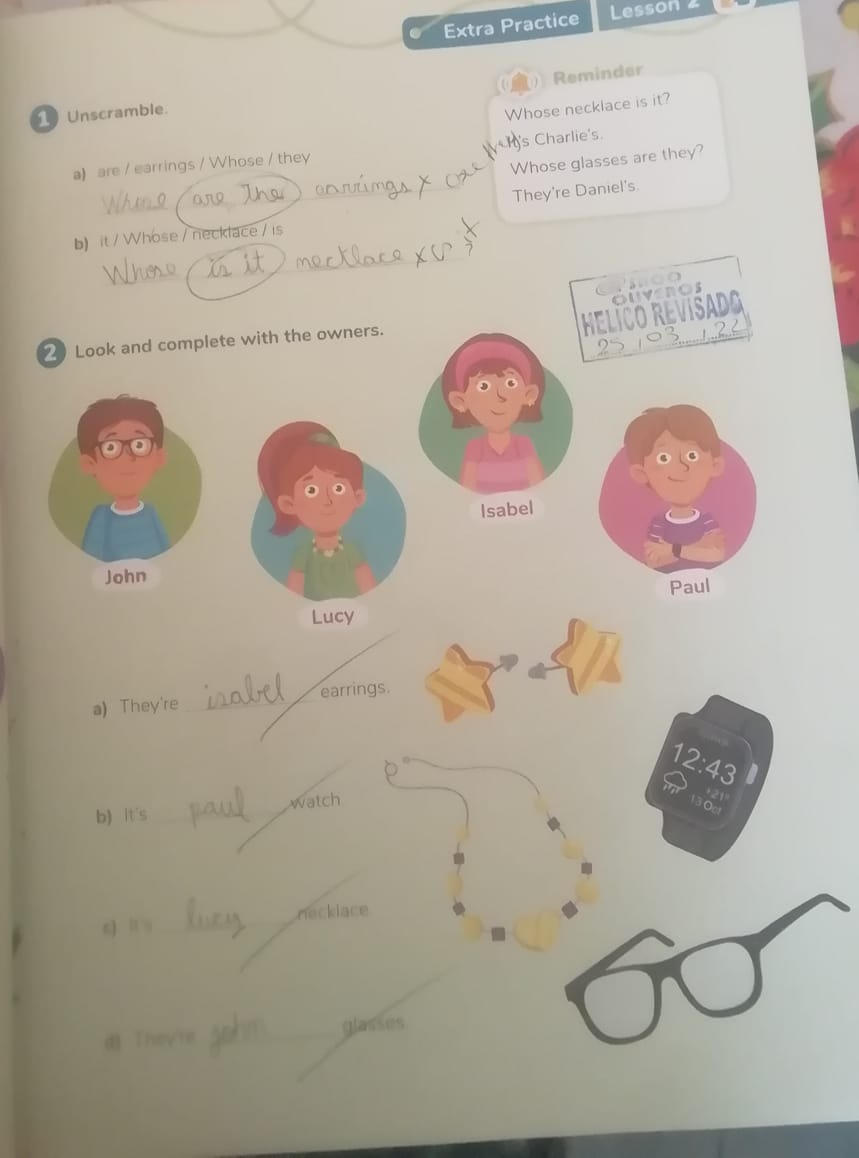 Extra Practice
Lesson 2
Reminder
Whose necklace is it?
It's Charlie's.
Whose glasses are they?
They're Daniel's.
1 Unscramble.
a) are / earrings / Whose / they
Whose are The earrings x are they
b) it / Whose / necklace / is
Whose is it necklace x
OLIVEROS
HELICO REVISADO
25 / 03 / 22
2 Look and complete with the owners.
John
Lucy
Isabel
Paul
a) They're isabel earrings.
b) It's paul watch
12:43
+21°
13 Oct
c) It's lucy necklace.
d) They're john glasses.